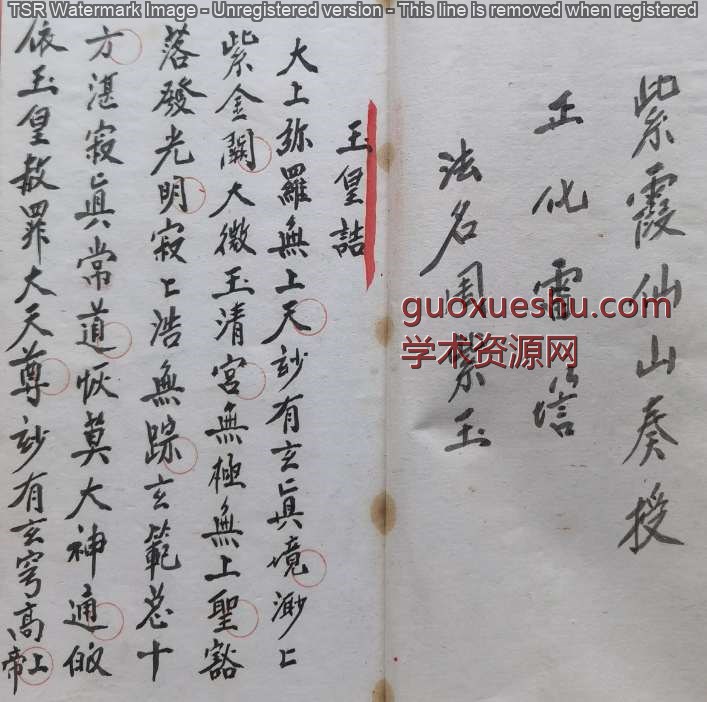 TSR Watermark Image - Unregistered version - This line is removed when registered
紫霞仙山奏授
正化雷
法名周紫玉
guoxueshu.com
学术资源网
玉皇誥
大上弥羅無上天玅有玄眞境渺〻
紫金闕大微玉清宮無極無上聖豁
落發光明寂〻浩無踪玄範总十
方湛寂眞常道恢莫大神通皈
依玉皇赦罪大天尊玅有玄穹高上帝